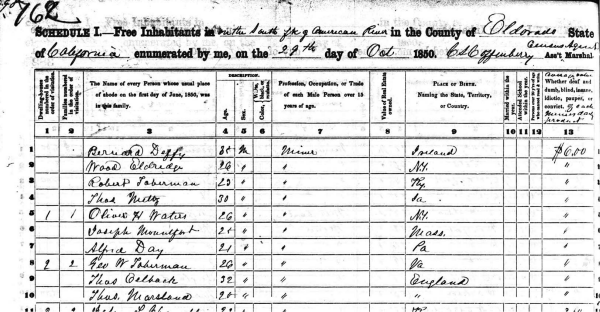 762
SCHEDULE I.—Free Inhabitants in the South fk of American River in the County of Eldorado State
of California enumerated by me, on the 29th day of Oct 1850. Census Agent Ass't Marshal.
Dwelling-houses numbered in the order of visitation.
Families numbered in the order of visitation.
The Name of every Person whose usual place of abode on the first day of June, 1850, was in this family.
DESCRIPTION.
Age.
Sex.
Color,
Profession, Occupation, or Trade of each Male Person over 15 years of age.
Value of Real Estate owned.
PLACE OF BIRTH.
Naming the State, Territory, or Country.
Married within the year.
Whether deaf and dumb, blind, insane, idiotic, pauper, or convict.
1 2 3 4 5 6 7 8 9 10 11 12 13
1 Bernard Deffy M Miner Ireland $6.00 1
2 Wood Eldridge 26 " " N.Y. " 2
3 Robert Toberman 23 " " Ky. " 3
4 Thos 30 " " " 4
5 1 1 Oliver H Waters 26 " " N.Y. " 5
6 Joseph Mountfort " " Mass. " 6
7 Alfred Day 21 " " Pa " 7
8 2 2 Geo W Toberman 26 " " Va " 8
9 Thos Celback 32 " " England " 9
10 Thos. Marsland " " " " 10